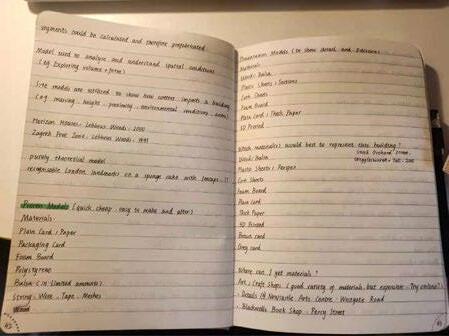 segments could be calculated and therefore prefabricated
Model used to analyse and understand spatial conditions
(eg Exploring volume + form)
Site models are utilised to show how context impacts a building
(eg massing, height, proximity, environmental conditions,
Horizon Houses, Lebbeus Woods, 2000
Zagreb Free Zone, Lebbeus Woods, 1991
purely theoretical model
recognisable London landmarks on a sponge cake with
Process Models (quick, cheap, easy to make and alter)
Materials:
Plain Card / Paper
Packaging Card
Foam Board
Polystyrene
Balsa (in limited amounts)
String, Wire, Tape, Meshes
Wood
Presentation Models (to show detail and
Materials
Wood / Balsa
Plastic Sheets / Sections
Cork Sheets
Foam Board
Plain card / Thick Paper
3D Printed
Which material(s) would best to represent the building?
Wood / Balsa
Plastic Sheets /
Cork Sheets
Foam Board
Plain card
Thick Paper
3D Printed
Brown card
Grey card
Where can I get materials?
Art / Craft Shops (Good variety of materials but expensive - Try online)
Details @ Newcastle Arts Centre, Westgate Road
Blackwells Book Shop, Percy Street